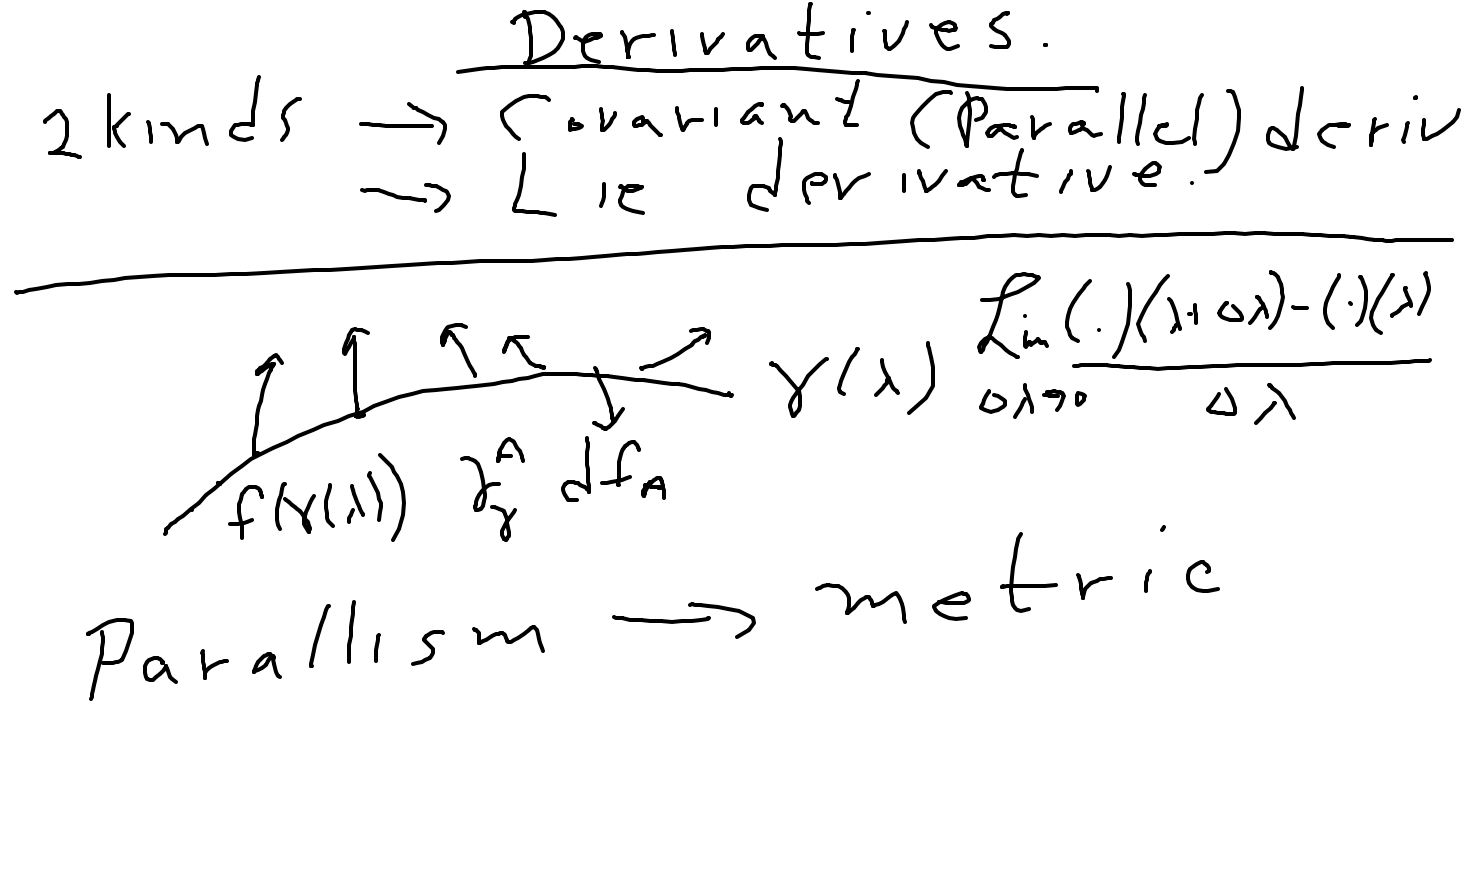 Derivatives.
2 kinds → Covariant (Parallel) deriv
→ Lie derivative.
γ(λ) Lim Δλ→0 (·)(λ+Δλ)-(·)(λ) / Δλ
f(γ(λ)) γ^A_γ df_A
Parallism → metric